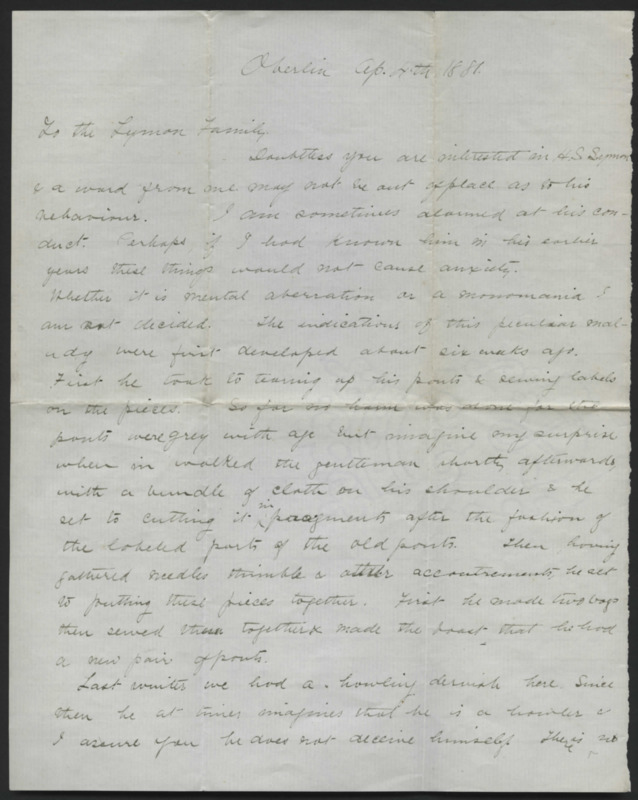 Oberlin Ap. 4th 1881.
To the Lymon Family.
Doubtless you are interested in H.S. Lymon
& a word from me may not be out of place as to his
behaviour. I am sometimes alarmed at his con-
duct. Perhaps if I had known him in his earlier
years these things would not cause anxiety.
Whether it is mental aberration or a monomania I
am not decided. The indications of this peculiar mal-
ady were first developed about six weeks ago.
First he took to tearing up his pants & sewing labels
on the pieces. So far no harm was done for the
pants were grey with age but imagine my surprise
when in walked the gentleman shortly afterwards
with a bundle of cloth on his shoulder & he
set to cutting it in fragments after the fashion of
the labeled parts of the old pants. Then, having
gathered needles thimble & other accoutrements, he set
to putting these pieces together. First he made two bags
then sewed them together & made the boast that he had
a new pair of pants.
Last winter we had a howling dervish here. Since
then he at times imagines that he is a howler &
I assure you he does not deceive himself. There is no